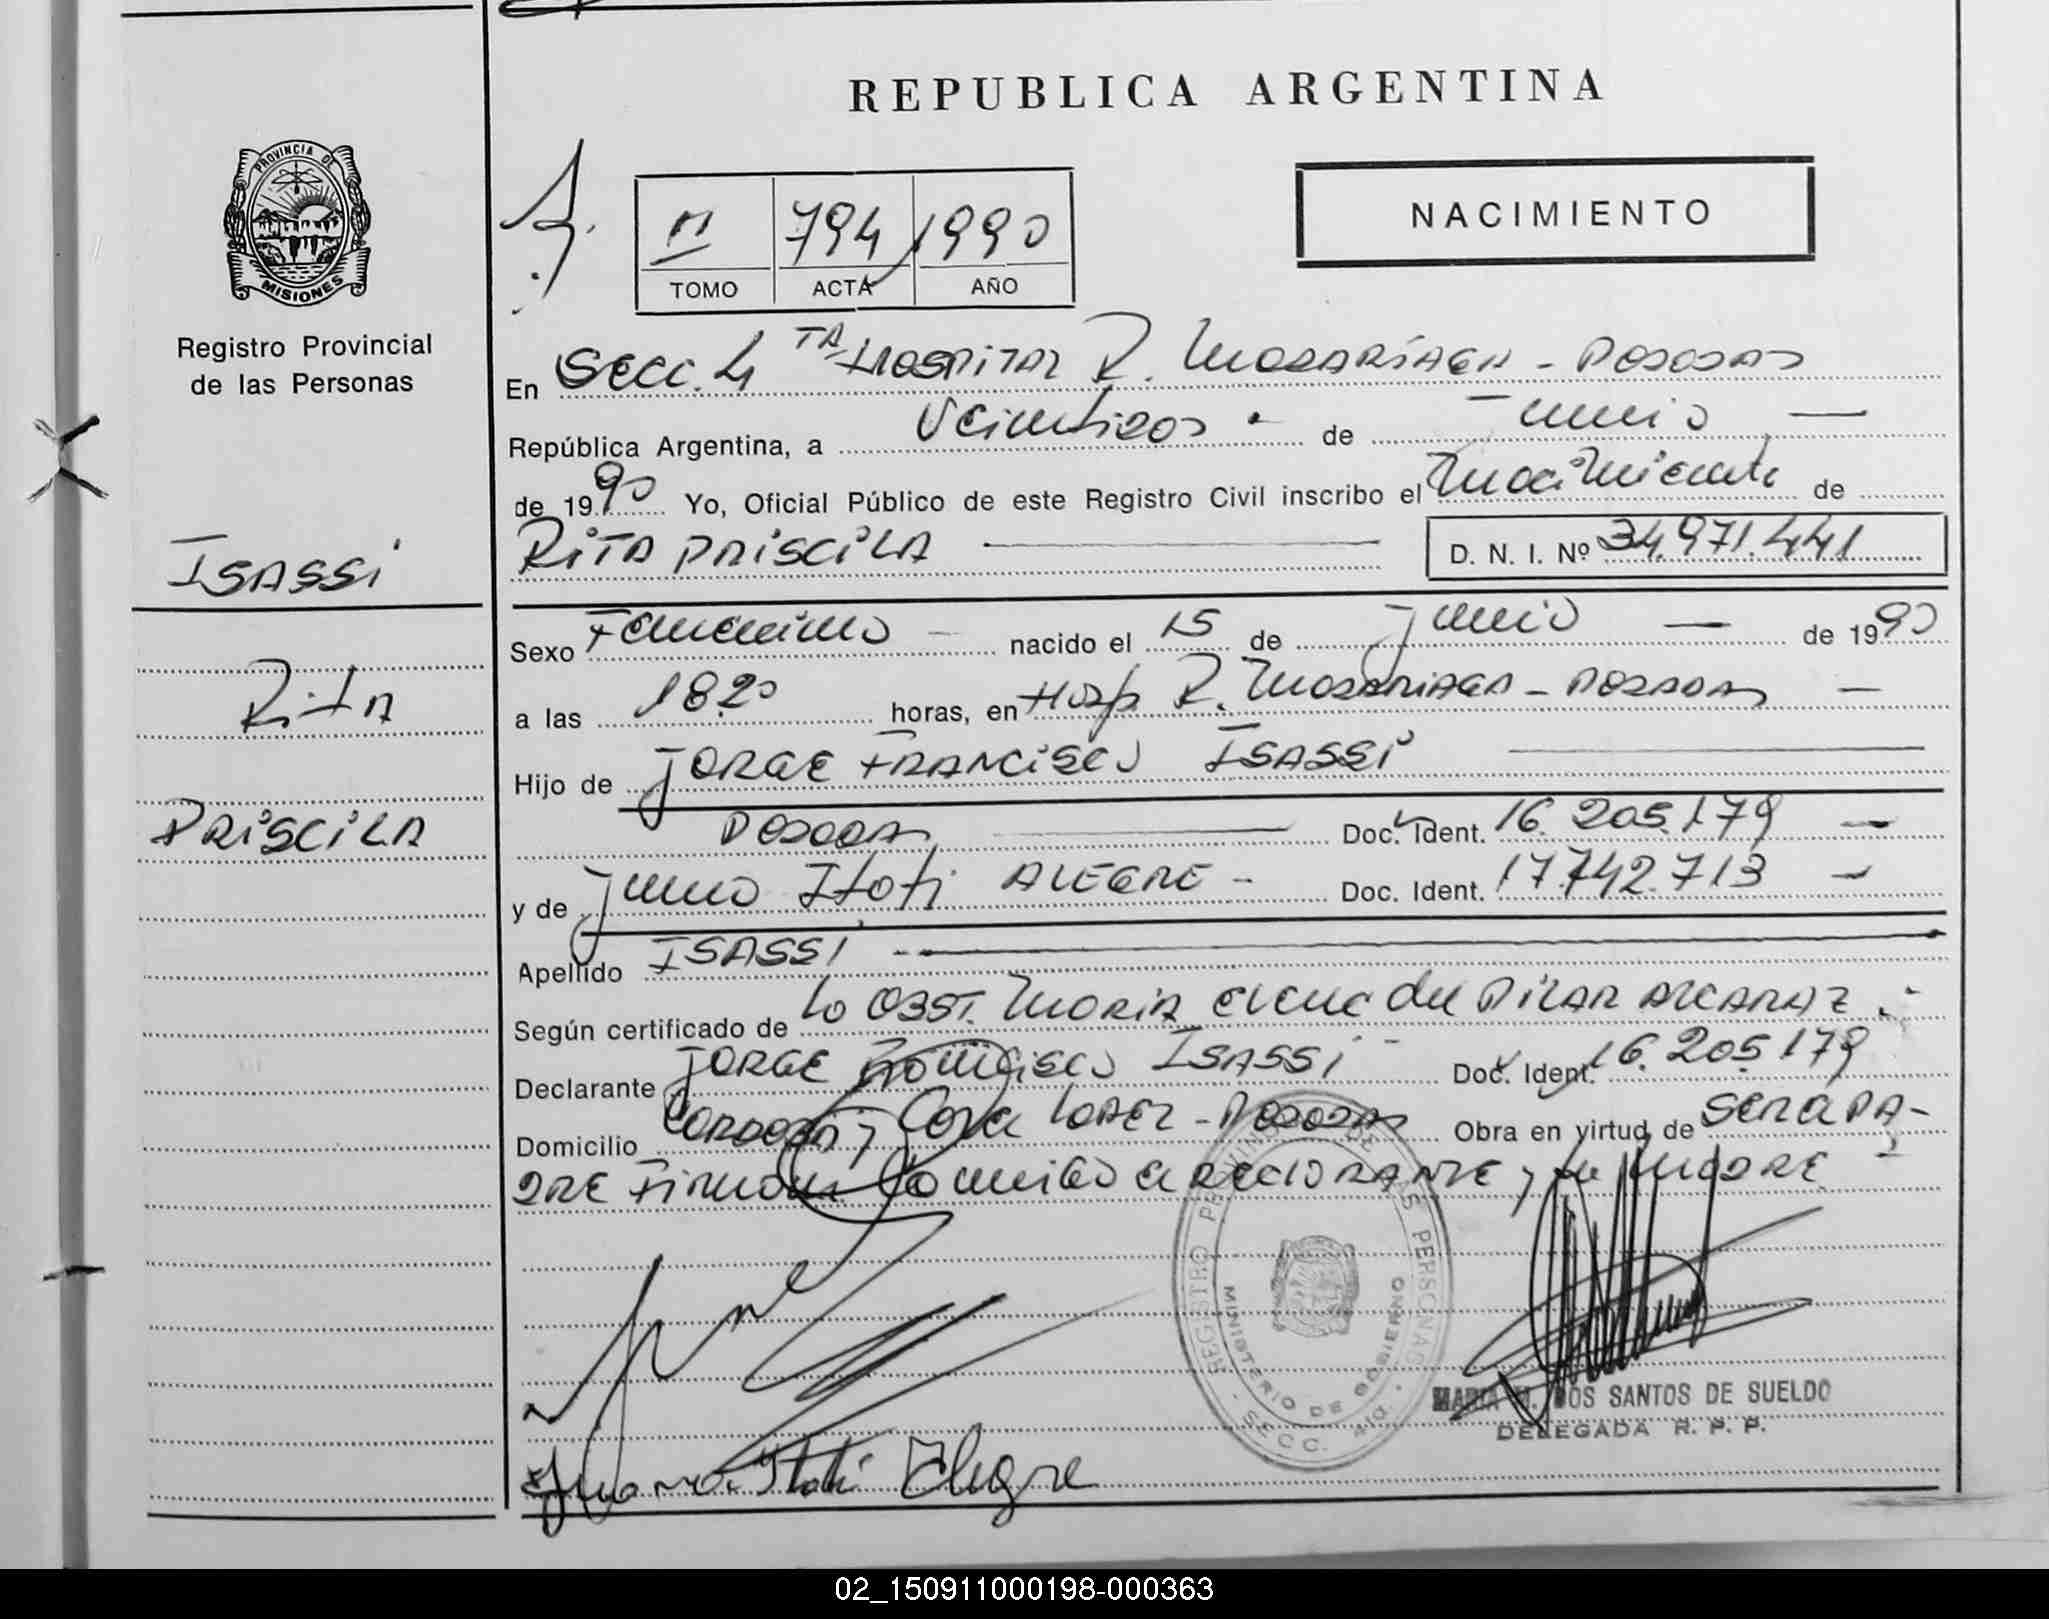 REPUBLICA ARGENTINA
PROVINCIA DE
MISIONES
Registro Provincial
de las Personas
II 794 1990
TOMO ACTA AÑO
NACIMIENTO
En Secc. 4 TA Hospital R. Madariaga - Posadas
República Argentina, a Veintidos de Junio
de 1990 Yo, Oficial Público de este Registro Civil inscribo el Nacimiento de
Isassi
Rita Priscila D. N. I. Nº 34.971.441
Sexo Femenino nacido el 15 de junio de 1990
Rita
a las 18.20 horas, en Hosp. R. Madariaga - Posadas
Hijo de Jorge Francisco Isassi
Priscila
Posadas Doc. Ident. 16.205.179
y de Juana Itati ALEGRE - Doc. Ident. 17.742.713
Apellido ISASSI
Según certificado de la Obst. Maria Elena del Pilar Alcaraz.-
Declarante Jorge Francisco Isassi - Doc. Ident. 16.205.179
Domicilio Cordoba y Lopez - Posadas Obra en virtud de Ser el Pa-
dre Firman Conmigo el declarante y la Madre -
REGISTRO PROVINCIAL DE LAS PERSONAS
MINISTERIO DE GOBIERNO
- SECC. 4ta. -
MARIA DOS SANTOS DE SUELDO
DELEGADA R. P. P.
Juana Itati Alegre
02_150911000198-000363